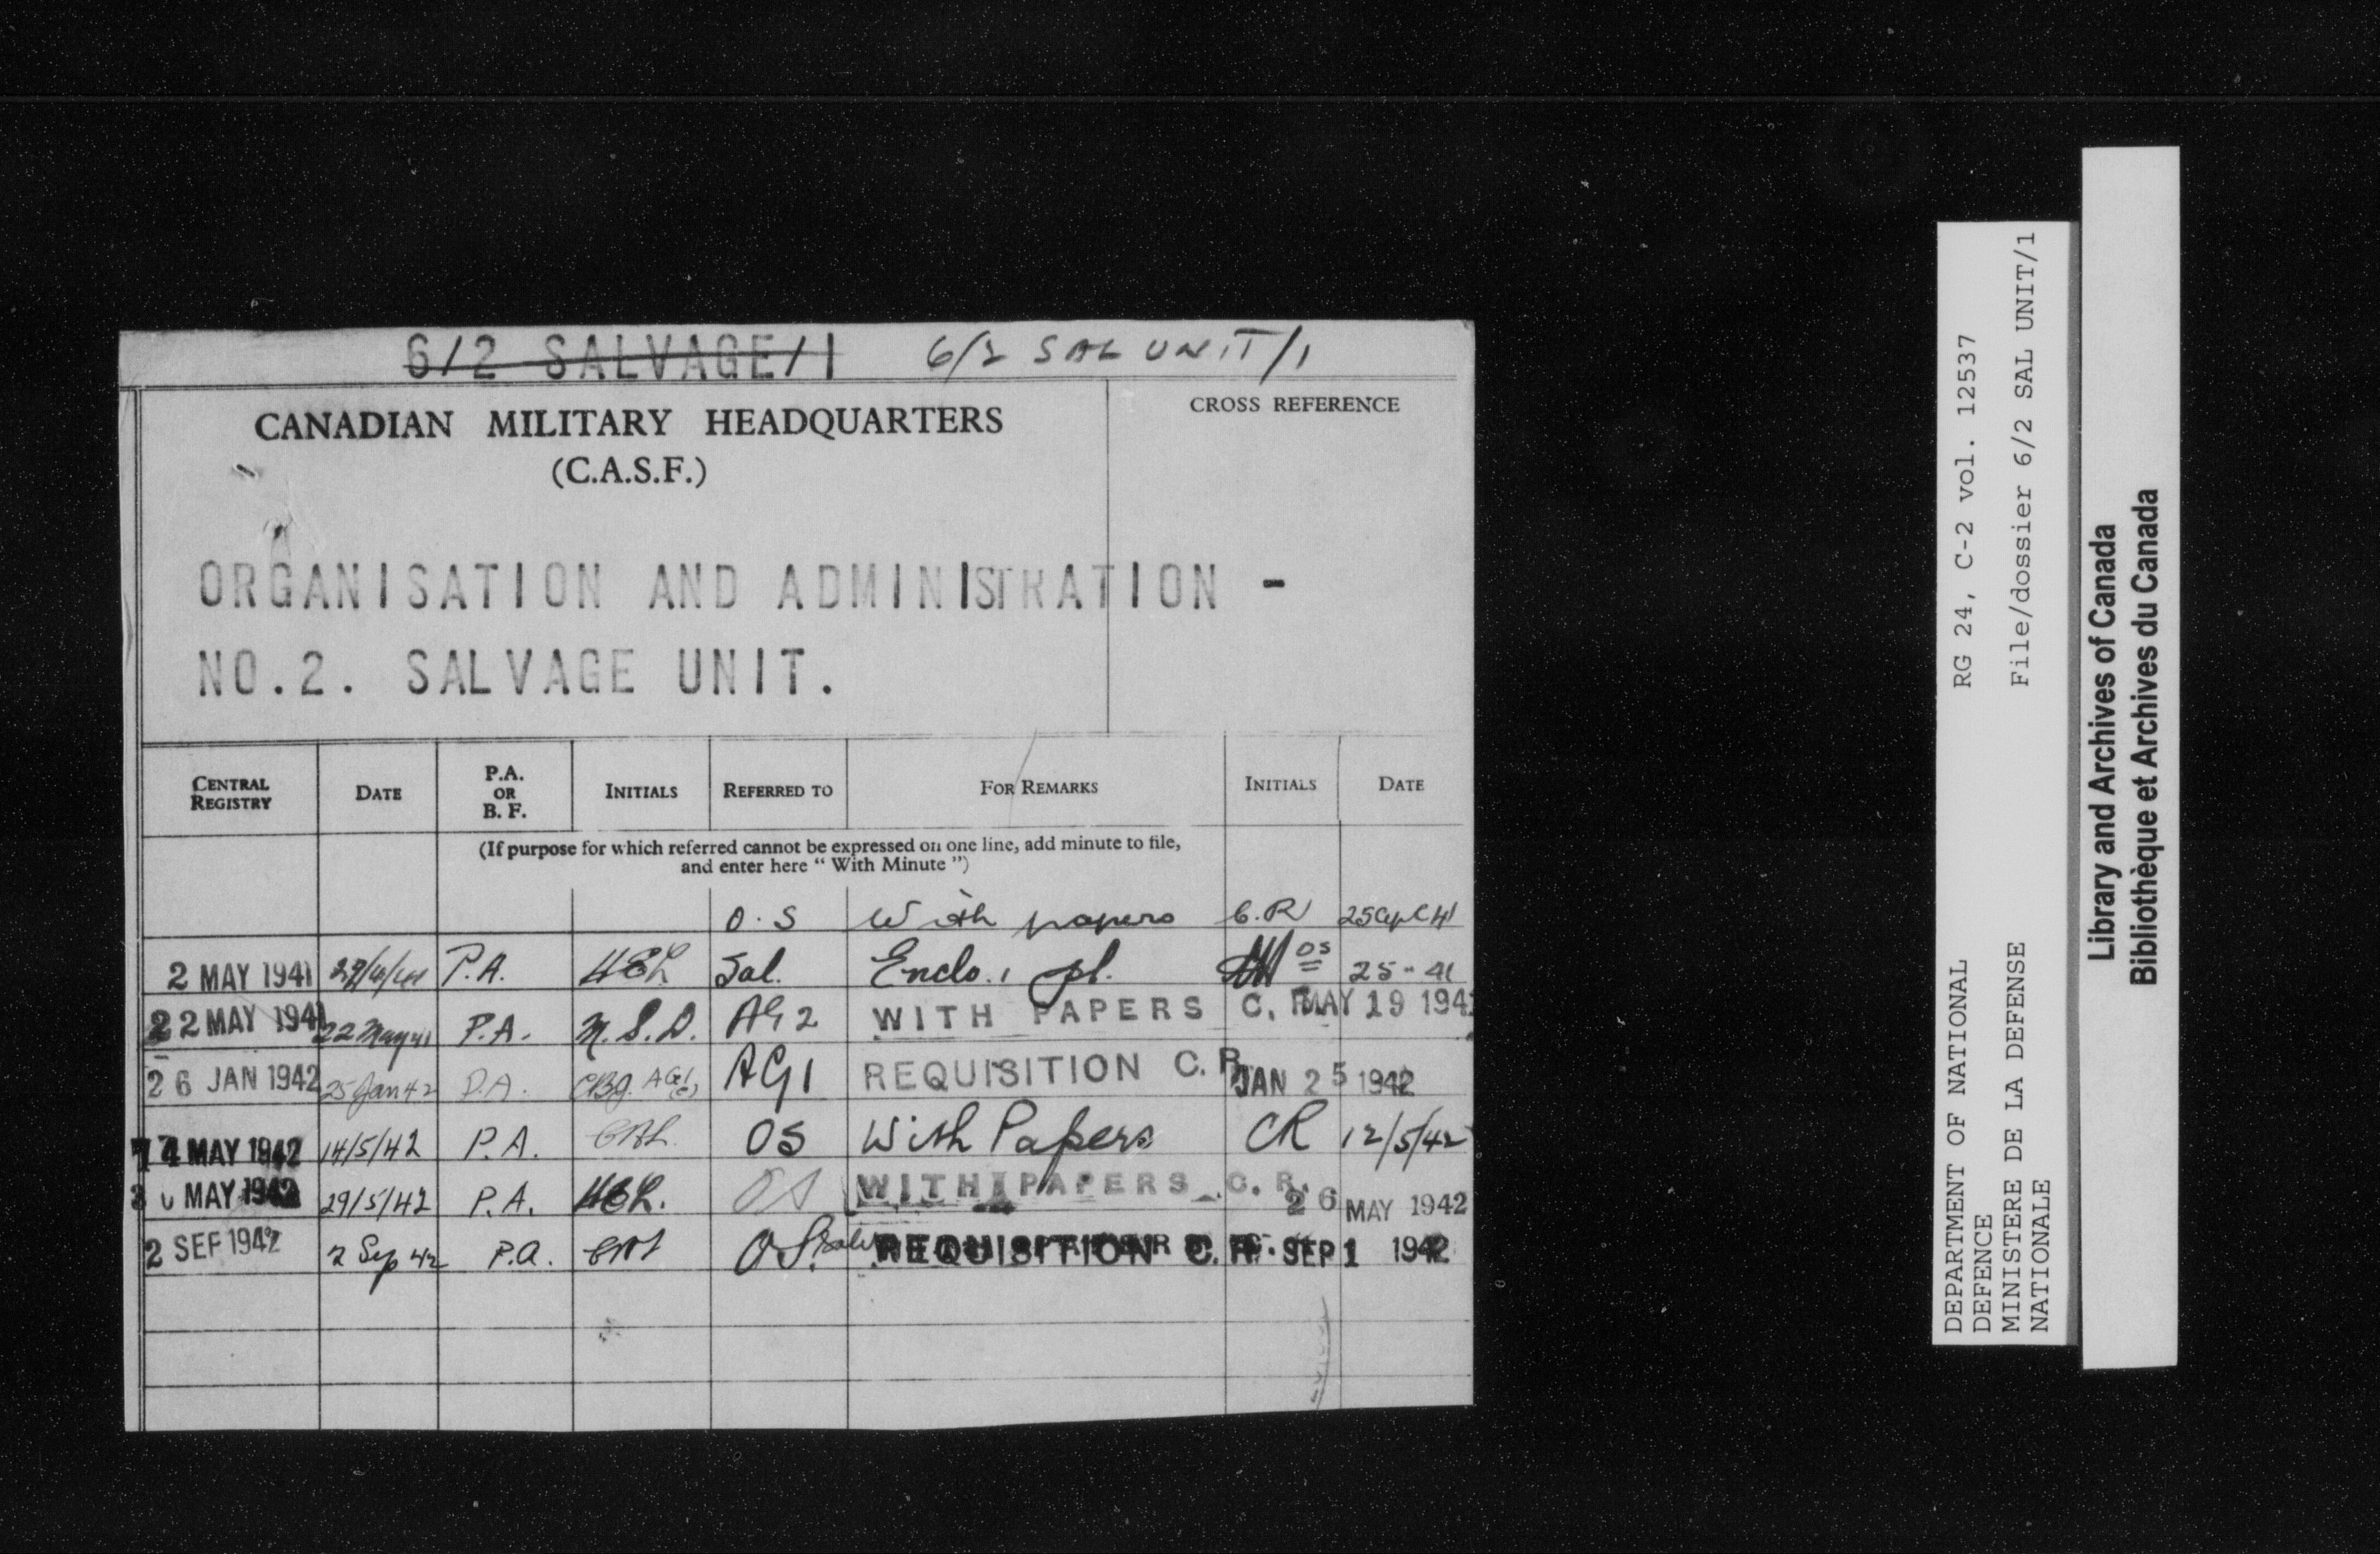 6/2 SALVAGE/1 6/2 SAL UNIT/1
CANADIAN MILITARY HEADQUARTERS
(C.A.S.F.)
CROSS REFERENCE
ORGANISATION AND ADMINISTRATION -
NO.2. SALVAGE UNIT.
CENTRAL REGISTRY DATE P.A. OR B. F. INITIALS REFERRED TO FOR REMARKS INITIALS DATE
(If purpose for which referred cannot be expressed on one line, add minute to file,
and enter here “ With Minute ”)
O.S With papers C.R 25 41
2 MAY 1941 P.A. HEL Sal. Enclo. 1 pl. OS 25 - 41
22 MAY 1941 22 May 41 P.A. M.S.D. AG2 WITH PAPERS C. R. MAY 19 1941
26 JAN 1942 25 Jan 42 P.A. AG1 REQUISITION C.R. JAN 25 1942
14 MAY 1942 14/5/42 P.A. OS With Papers CR 12/5/42
30 MAY 1942 29/5/42 P.A. HEL. OS WITH PAPERS C. R. 26 MAY 1942
2 SEP 1942 2 Sep 42 P.A. O.S. REQUISITION C. R. SEP 1 1942
DEPARTMENT OF NATIONAL RG 24, C-2 vol. 12537
DEFENCE
MINISTERE DE LA DEFENSE File/dossier 6/2 SAL UNIT/1
NATIONALE
Library and Archives of Canada
Bibliothèque et Archives du Canada